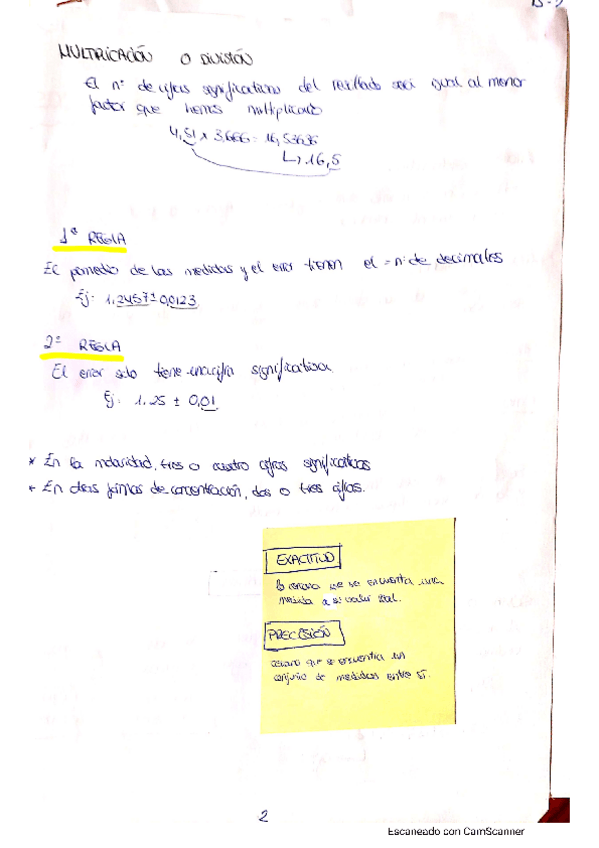 MULTIPLICACIÓN O DIVISIÓN
El nº de cifras significativas del resultado será igual al menor
factor que hemos multiplicado
4,51 x 3,666 = 16,53636
↳ 16,5
1ª REGLA
El promedio de las medidas y el error tienen el = nº de decimales
Ej: 1,2457 ± 0,0123
2ª REGLA
El error solo tiene una cifra significativa
Ej: 1.25 ± 0,01
* En la molaridad, tres o cuatro cifras significativas
* En otras formas de concentración, dos o tres cifras.
EXACTITUD
lo cercano que se encuentra una
medida a su valor real.
PRECISIÓN
cercano que se encuentra un
conjunto de medidas entre sí.
2
Escaneado con CamScanner